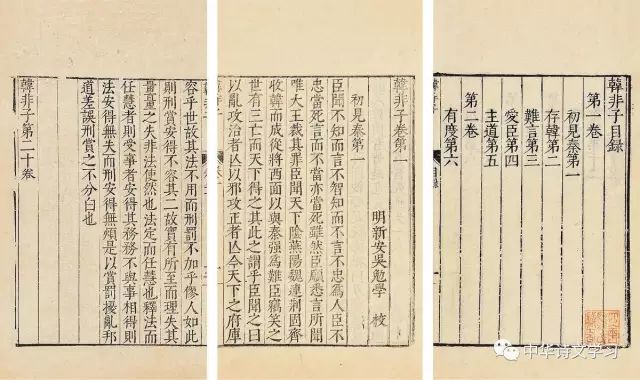 韓非子目錄
第一卷
初見秦第一
存韓第二
難言第三
愛臣第四
主道第五
第二卷
有度第六
目錄
韓非子卷第一
明新安吳勉學 校
初見秦第一
臣聞不知而言不智知而不言不忠為人臣不
忠當死言而不當亦當死雖然臣願悉言所聞
唯大王裁其罪臣聞天下陰燕陽魏連荆固齊
收韓而成從將西面以與秦强為難臣竊笑之
世有三亡而天下得之其此之謂乎臣聞之曰
以亂攻治者亾以邪攻正者亾今天下之府庫
容乎世故其法不用而刑罰不加乎僇人如此
則刑賞安得不容其二故實有所至而理失其
量量之失非法使然也法定而任慧也釋法而
任慧者則受事者安得其務務不與事相得則
法安得無失而刑安得無煩是以賞罰擾亂邦
道差誤刑賞之不分白也
韓非子第二十卷
中华诗文学习